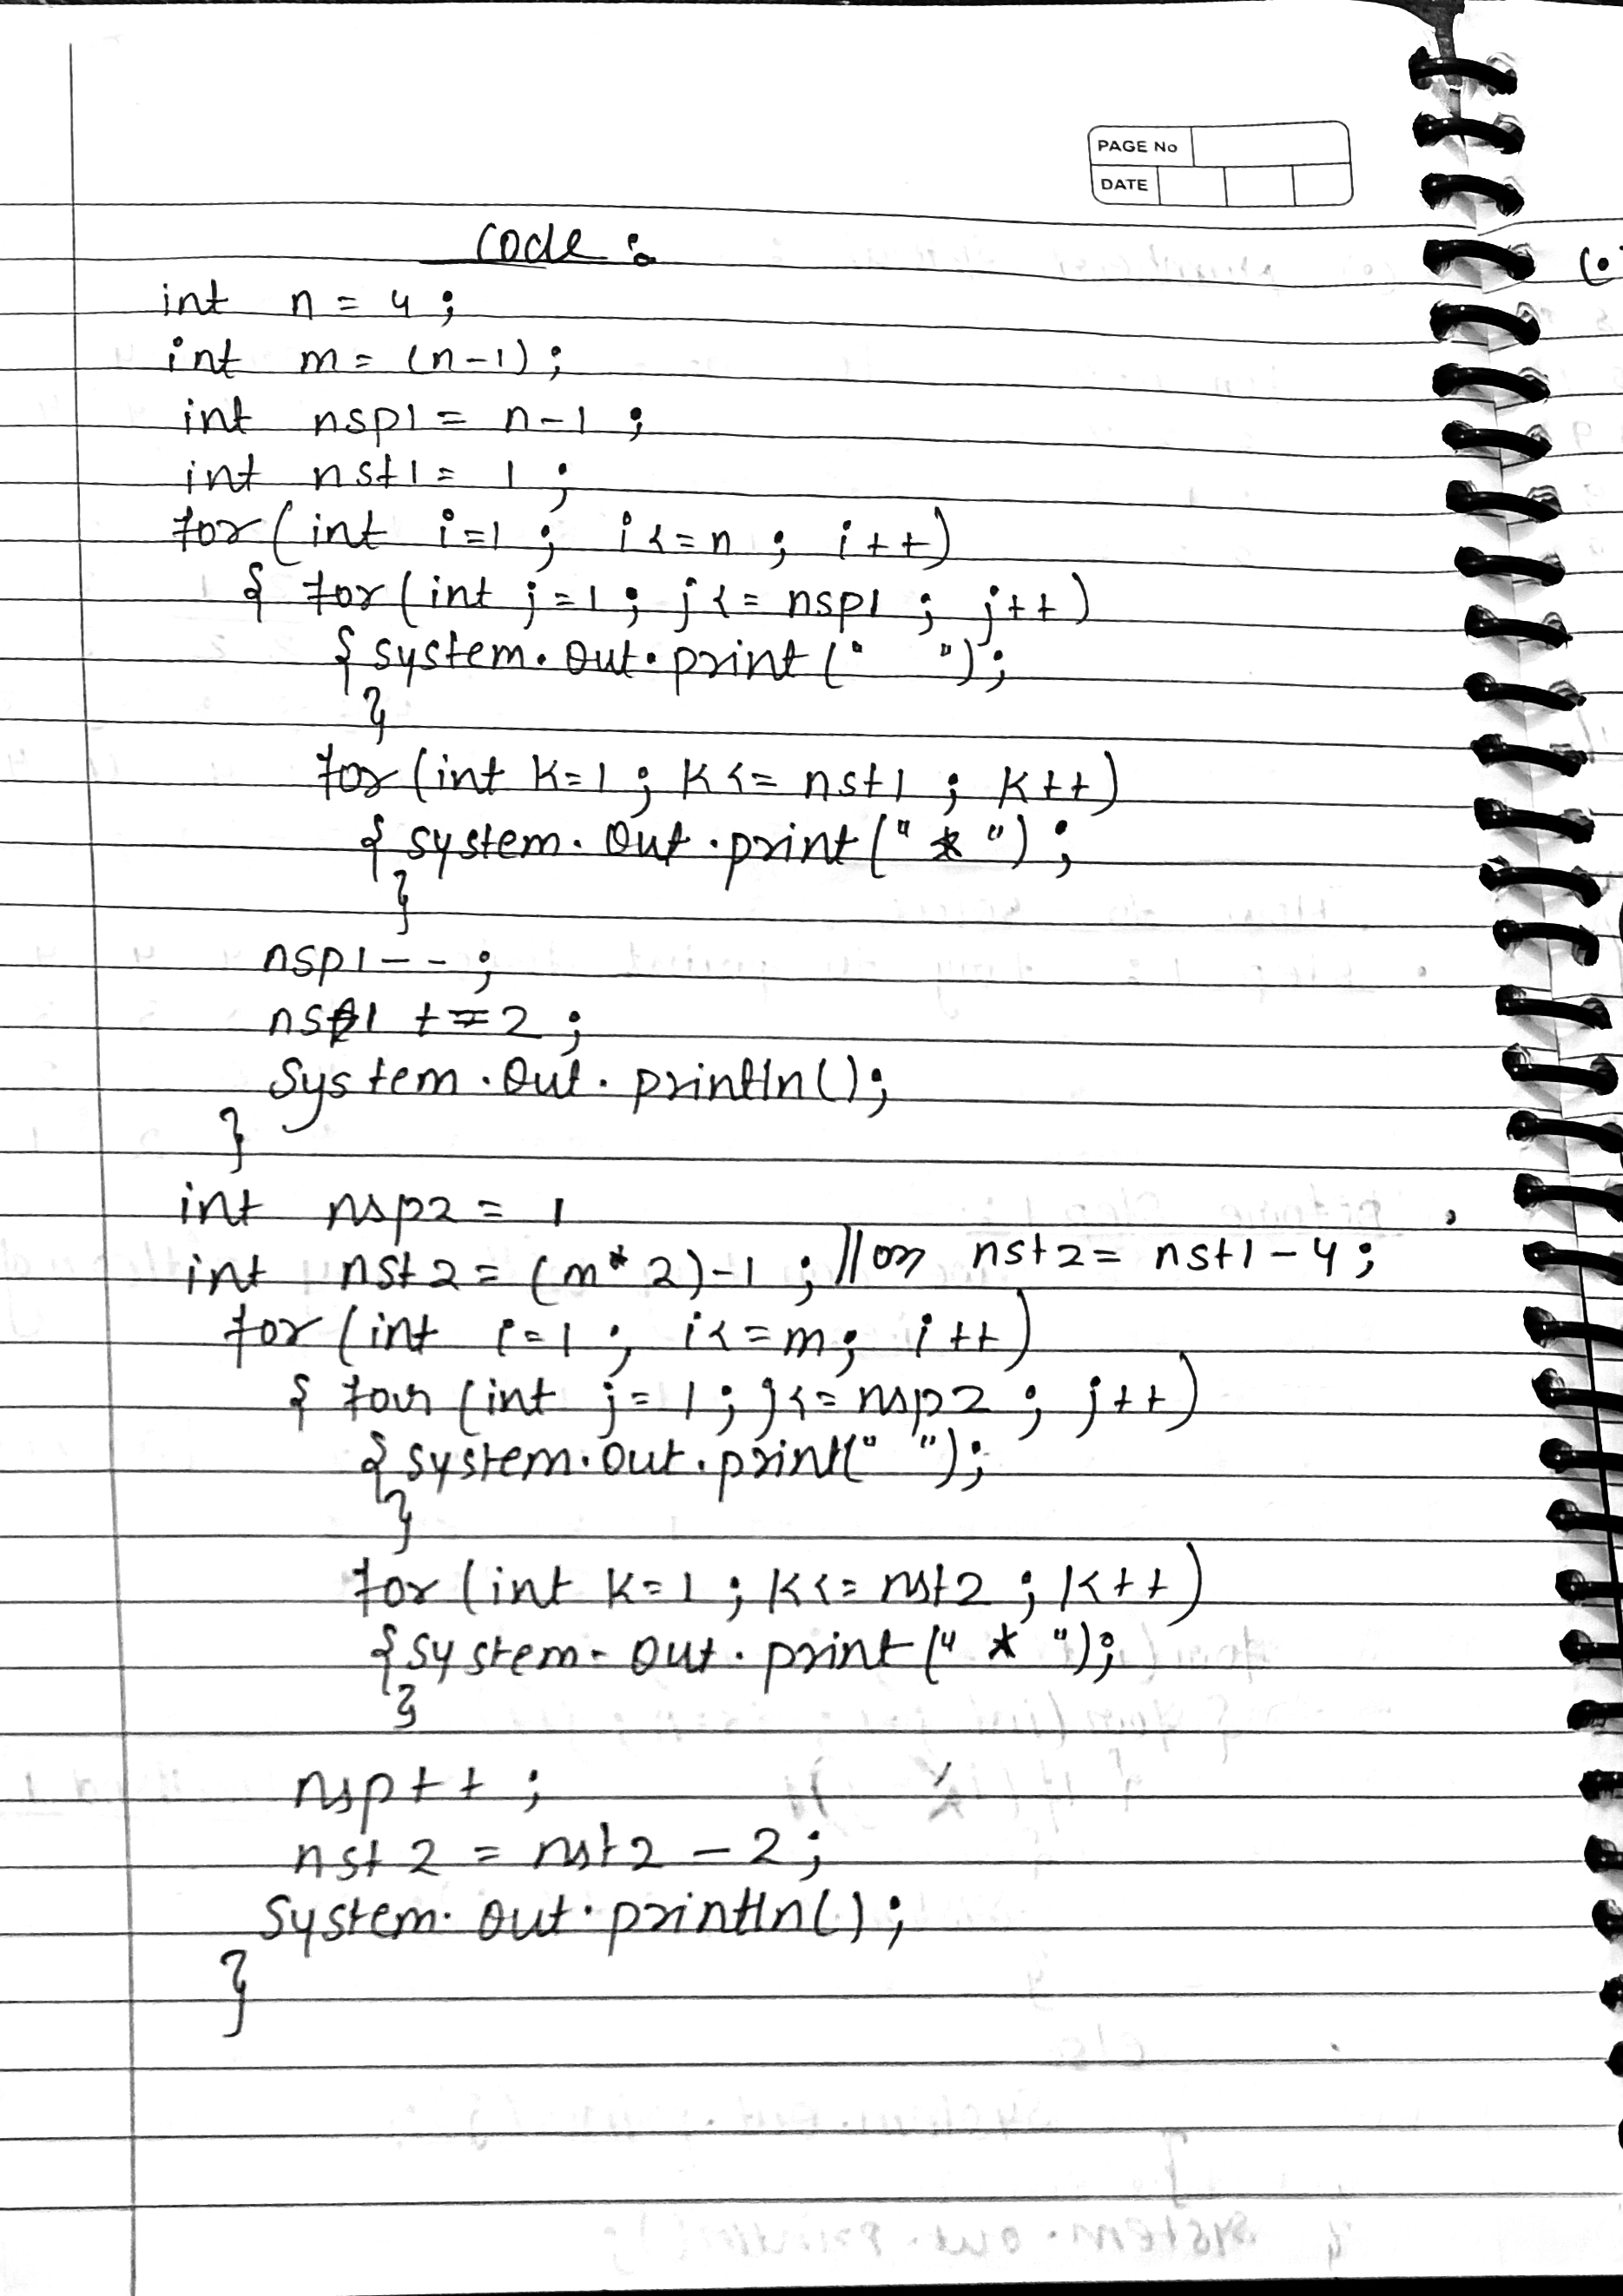 PAGE No
DATE
Code :
int n = 4 ;
int m = (n-1) ;
int nsp1 = n-1 ;
int nst1 = 1 ;
for ( int i=1 ; i<=n ; i++)
{ for ( int j=1 ; j<= nsp1 ; j++)
{ system.out.print (" ");
}
for (int k=1 ; k<= nst1 ; k++)
{ system.out.print (" * ") ;
}
nsp1-- ;
nst1 +=2 ;
System.out.println();
}
int nsp2 = 1
int nst2 = (m*2)-1 ; //or nst2 = nst1-4;
for (int i=1 ; i<=m; i++)
{ for (int j=1 ; j<= nsp2 ; j++)
{ system.out.print(" ");
}
for (int k=1 ; k<= nst2 ; k++)
{ system.out.print (" * ");
}
nsp++ ;
nst2 = nst2 - 2;
System.out.println() ;
}